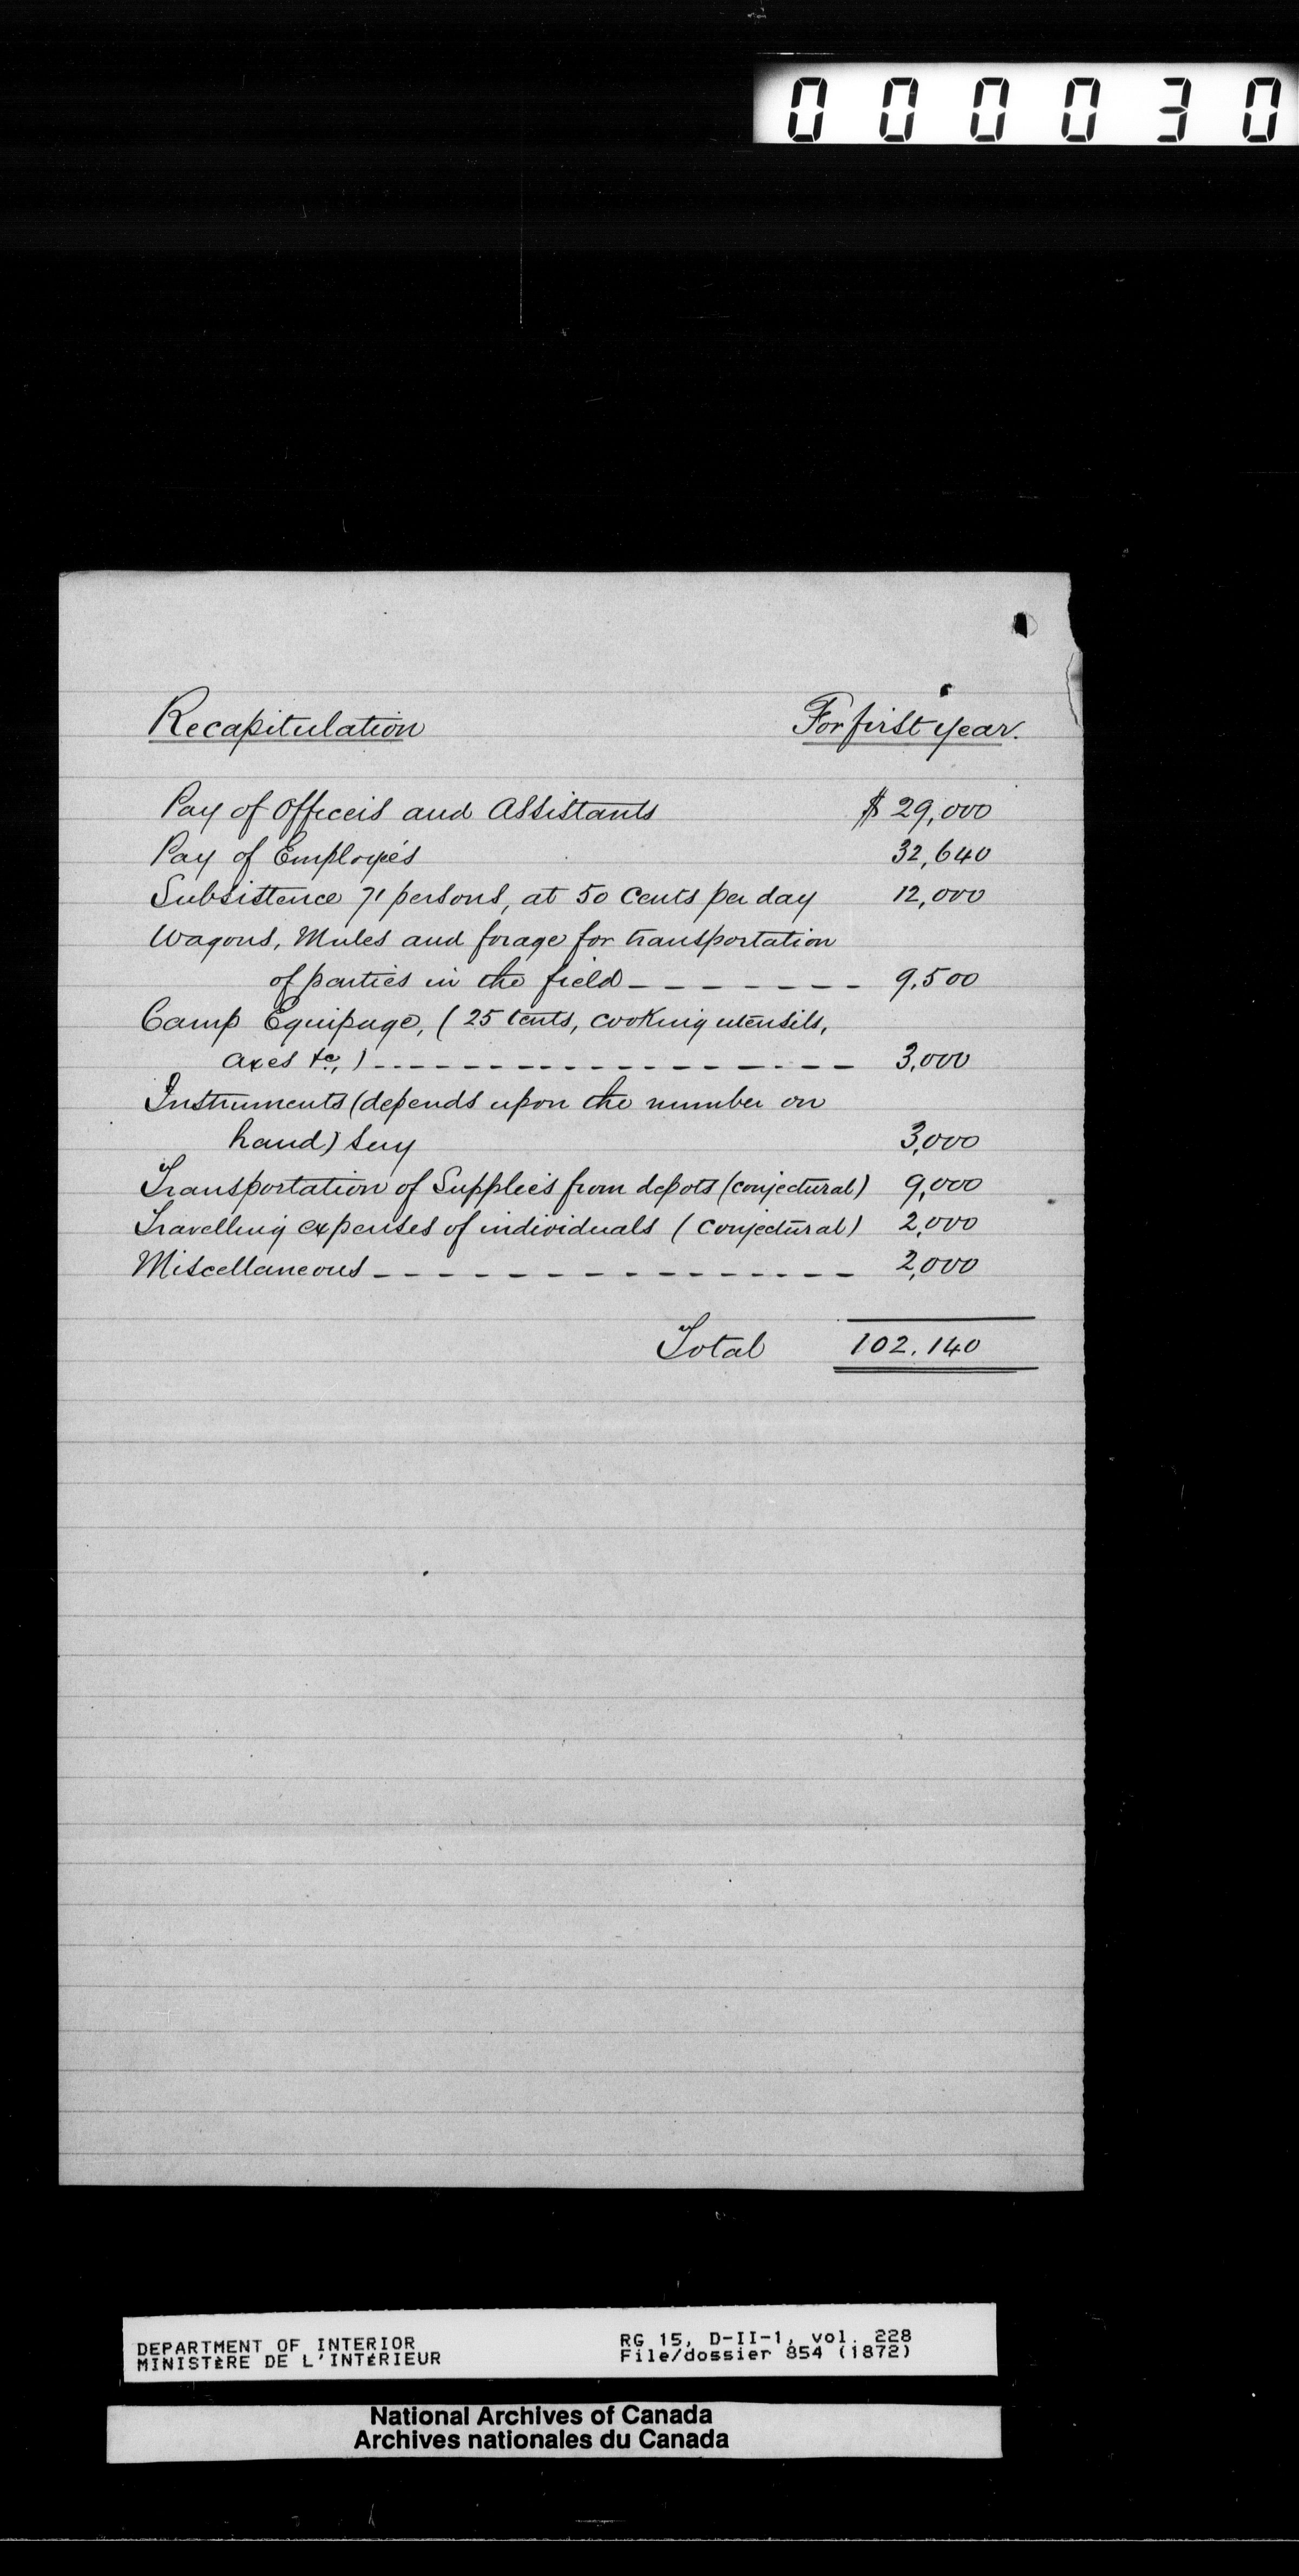 000030
Recapitulation For first year.
Pay of Officers and Assistants $ 29,000
Pay of Employés 32,640
Subsistence 71 persons, at 50 Cents per day 12,000
Wagons, Mules and forage for transportation
of parties in the field - - - - - - - 9,500
Camp Equipage, (25 tents, cooking utensils,
axes &c,) - - - - - - - - - - - - - - - 3,000
Instruments (depends upon the number on
hand) say 3,000
Transportation of Supplies from depots (conjectural) 9,000
Travelling expenses of individuals (conjectural) 2,000
Miscellaneous - - - - - - - - - - - - - - - 2,000
Total 102,140
DEPARTMENT OF INTERIOR RG 15, D-II-1, vol. 228
MINISTÈRE DE L'INTÉRIEUR File/dossier 854 (1872)
National Archives of Canada
Archives nationales du Canada